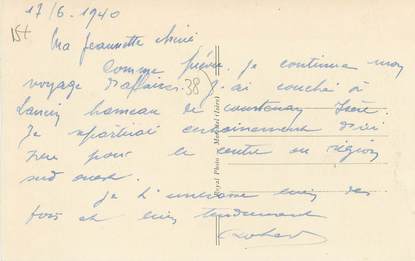 17/6. 1940
Ma Jeannette chérie
Comme prévu, je continue mon
voyage d'affaires. J'ai couché à
38
hameau de Courtenay Isère
Je repartirai certainement d'ici
pour le centre ou région
sud ouest.
Je t'embrasse bien des
fois et bien tendrement
Royal Photo
(Isère)